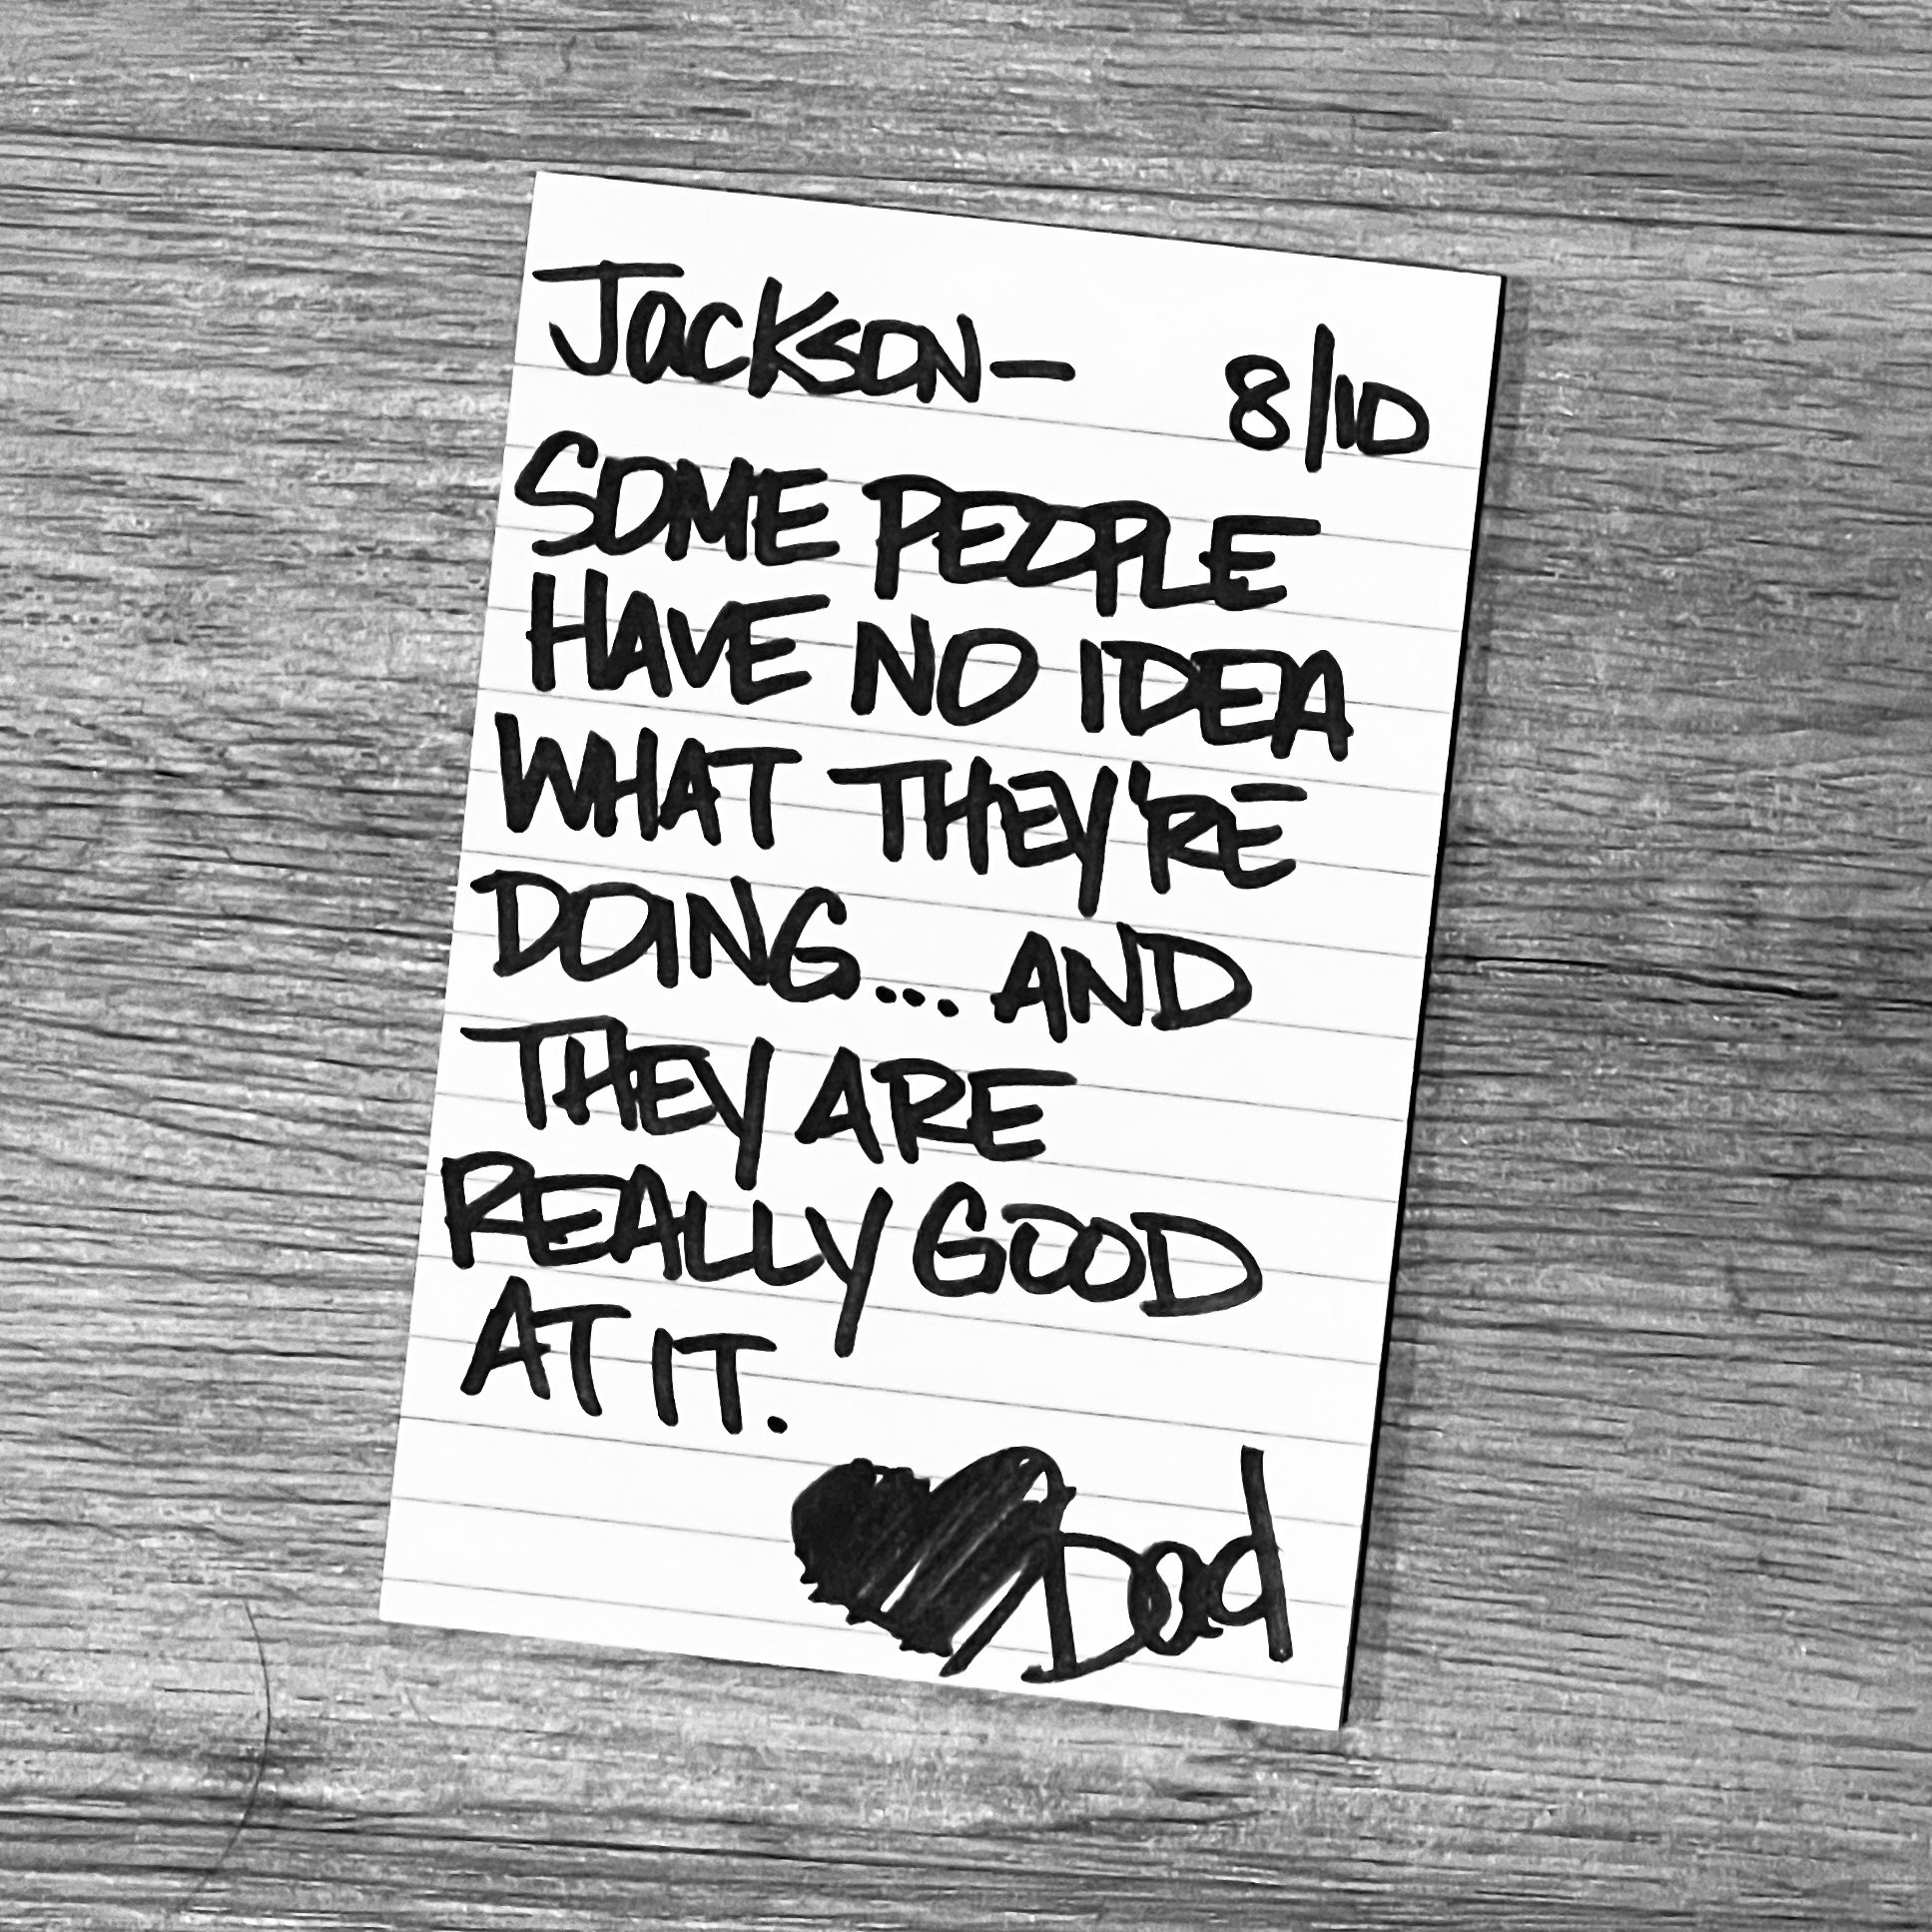 Jackson— 8/10
SOME PEOPLE
HAVE NO IDEA
WHAT THEY'RE
DOING... AND
THEY ARE
REALLY GOOD
AT IT.
Dad